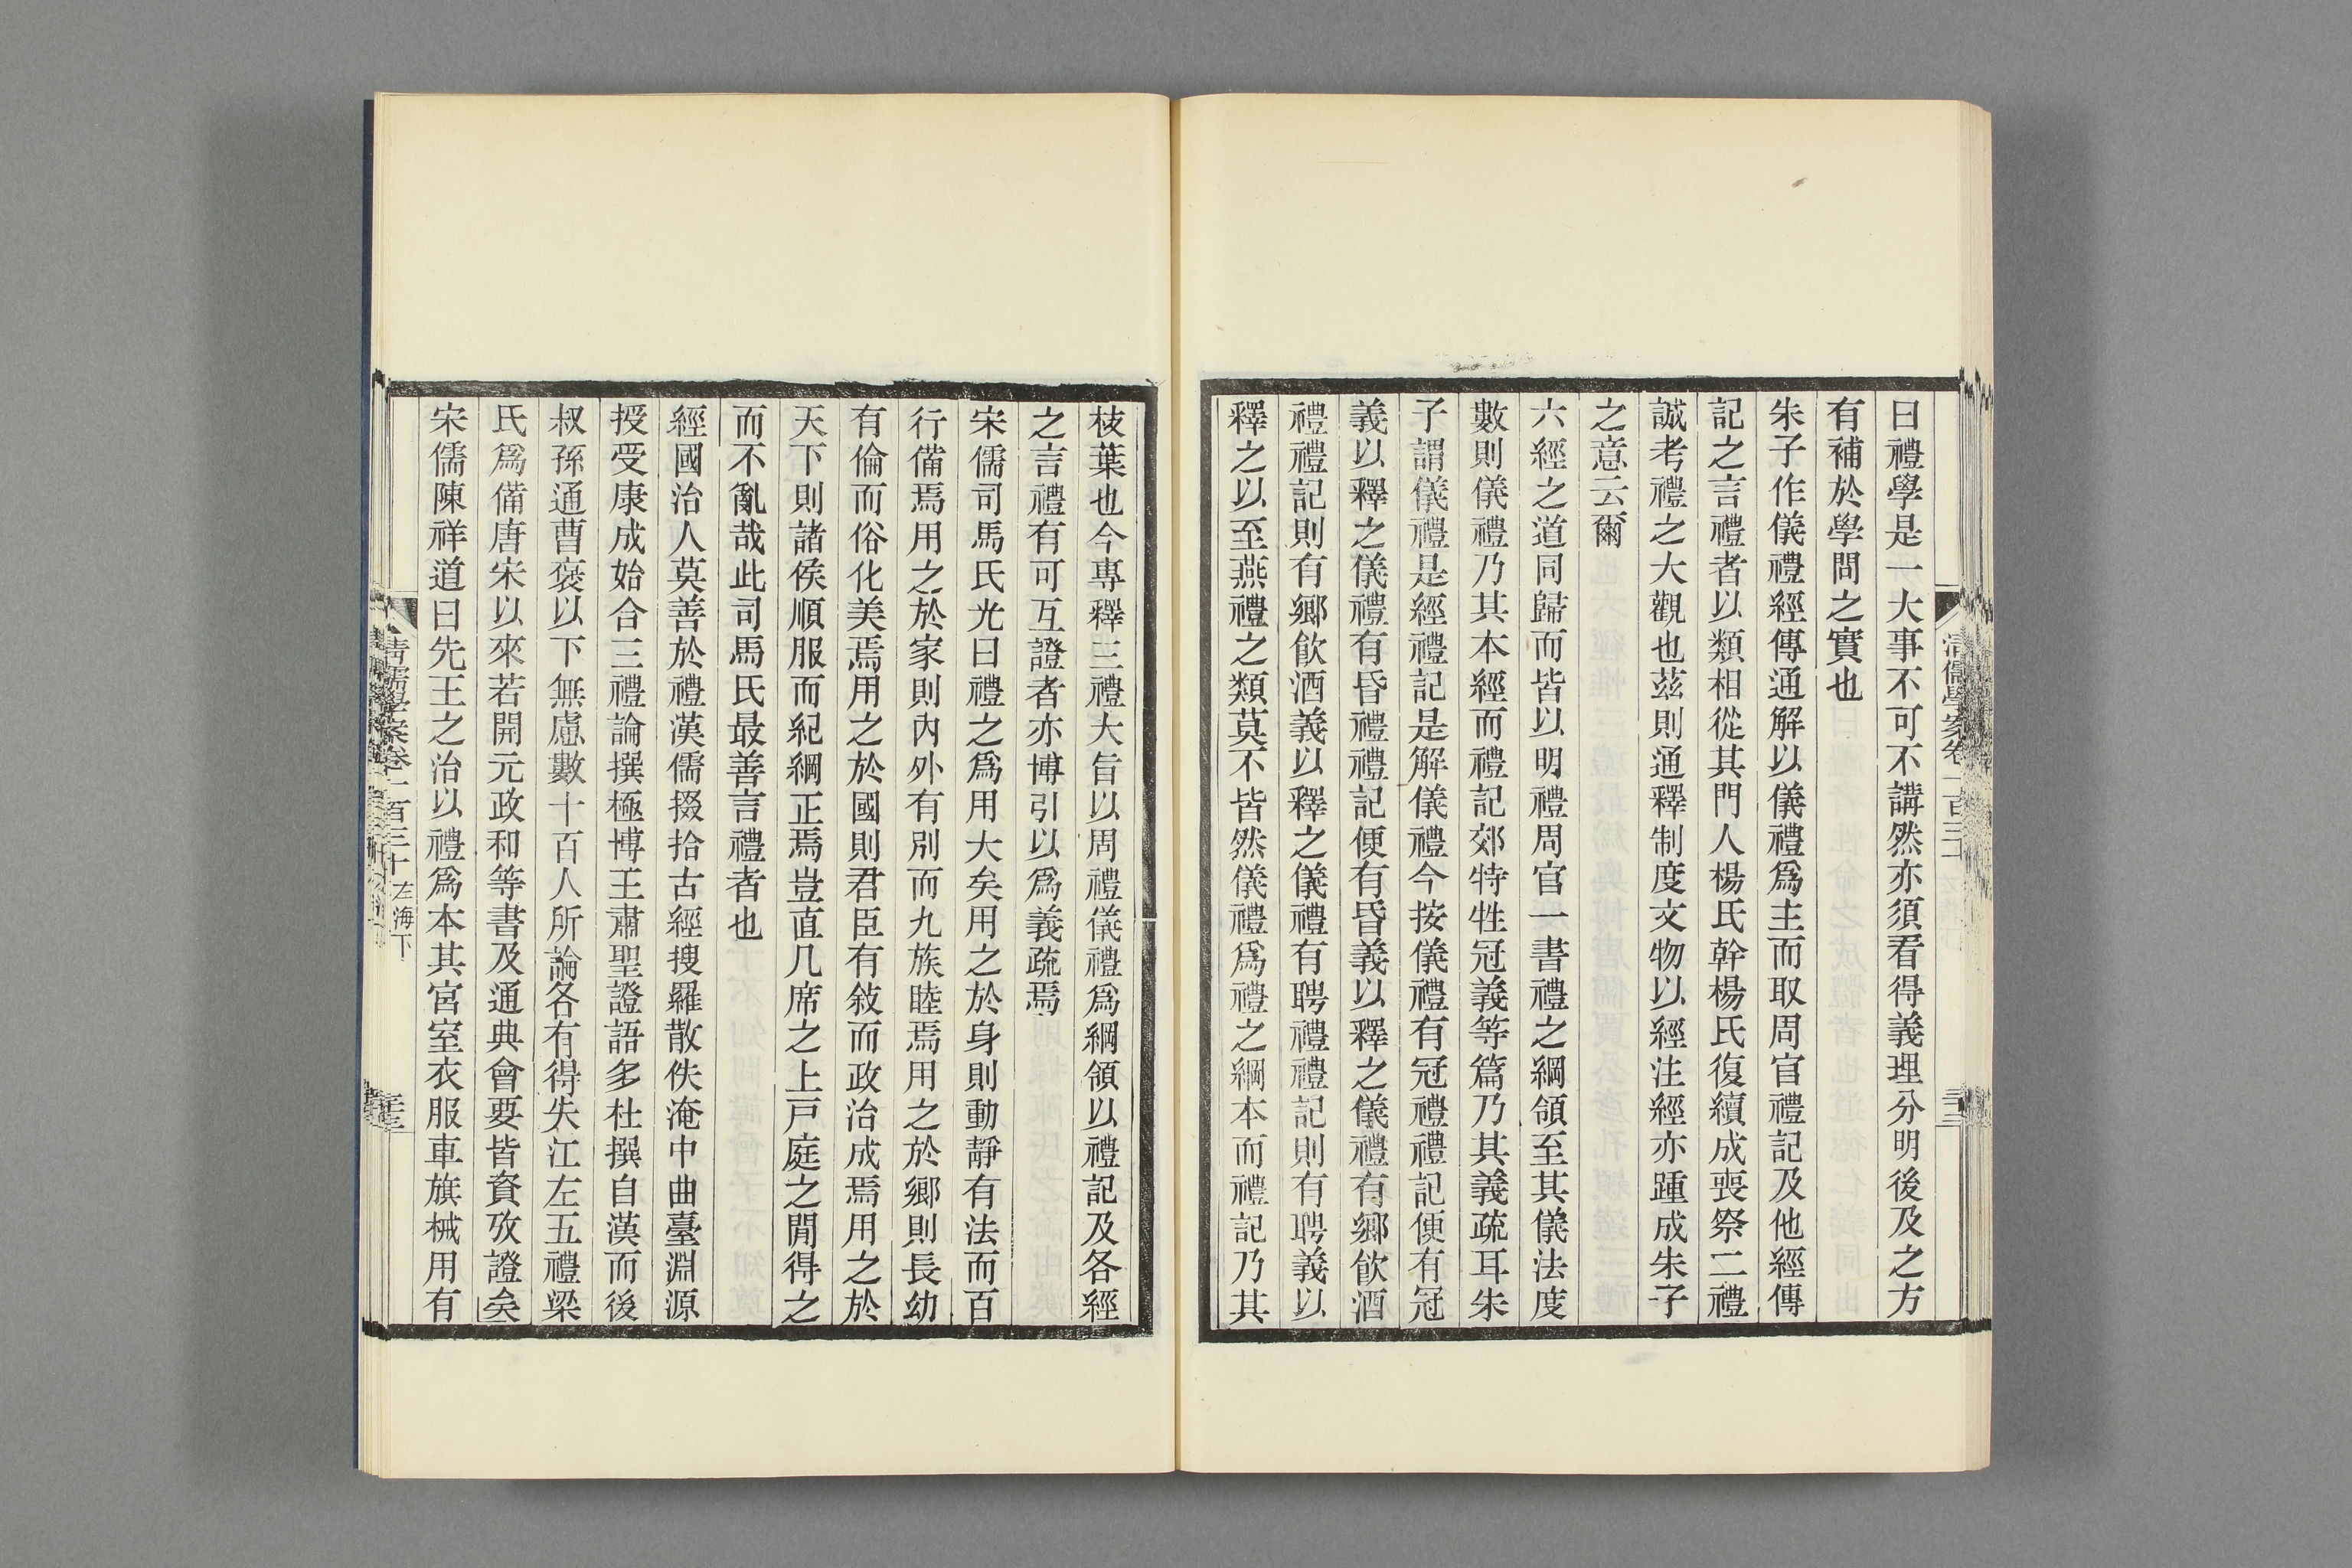 曰禮學是一大事不可不講然亦須看得義理分明後及之方
有補於學問之實也
朱子作儀禮經傳通解以儀禮爲主而取周官禮記及他經傳
記之言禮者以類相從其門人楊氏幹楊氏復續成喪祭二禮
誠考禮之大觀也茲則通釋制度文物以經注經亦踵成朱子
之意云爾
六經之道同歸而皆以明禮周官一書禮之綱領至其儀法度
數則儀禮乃其本經而禮記郊特牲冠義等篇乃其義疏耳朱
子謂儀禮是經禮記是解儀禮今按儀禮有冠禮禮記便有冠
義以釋之儀禮有昏禮禮記便有昏義以釋之儀禮有鄉飮酒
禮禮記則有鄉飮酒義以釋之儀禮有聘禮禮記則有聘義以
釋之以至燕禮之類莫不皆然儀禮爲禮之綱本而禮記乃其
枝葉也今專釋三禮大旨以周禮儀禮爲綱領以禮記及各經
之言禮有可互證者亦博引以爲義疏焉
宋儒司馬氏光曰禮之爲用大矣用之於身則動靜有法而百
行備焉用之於家則內外有別而九族睦焉用之於鄉則長幼
有倫而俗化美焉用之於國則君臣有敍而政治成焉用之於
天下則諸侯順服而紀綱正焉豈直几席之上戸庭之閒得之
而不亂哉此司馬氏最善言禮者也
經國治人莫善於禮漢儒掇拾古經搜羅散佚淹中曲臺淵源
授受康成始合三禮論撰極博王肅聖證語多杜撰自漢而後
叔孫通曹褒以下無慮數十百人所論各有得失江左五禮梁
氏爲備唐宋以來若開元政和等書及通典會要皆資攷證矣
宋儒陳祥道曰先王之治以禮爲本其宮室衣服車旗械用有
清儒學案卷一百三十 左海下